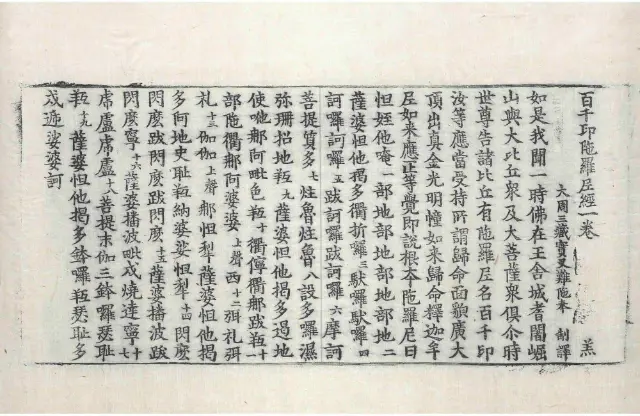 百千印陁羅尼經一卷
大周三蔵實叉難陁奉 制譯 羔
如是我聞一時佛在王舍城耆闍崛
山與大比丘衆及大菩薩衆俱尒時
世尊告諸比丘有陁羅尼名百千印
汝等應當受持所謂歸命面額廣大
頂出真金光明幢如来歸命釋迦牟
尼如来應正等覺即說根本陁羅尼曰
怛姪他唵一部地部地部地部地二
薩婆怛他揭多衢折囉三馱囉馱囉四
訶囉訶囉五跋訶囉跋訶囉六摩訶
菩提質多七炷魯炷魯八設多囉濕
弥珊招地羝九薩婆怛他揭多遏地
使咃那阿毗色羝十衢儜衢那跋羝十一
部陁衢那阿婆婆上聲西十二弭礼弭
礼十三伽伽上聲那怛犁薩婆怛他揭
多阿地史耻羝納婆娑怛犁十四閃麽
閃麽跋閃麽跋閃麽十五薩婆播波跋
閃麽寧十六薩婆播波毗戍燒達寧十七
席盧席盧十八菩提末伽三鉢囉瑟耻
羝十九薩婆怛他揭多鉢囉羝瑟耻多
戍娑婆訶